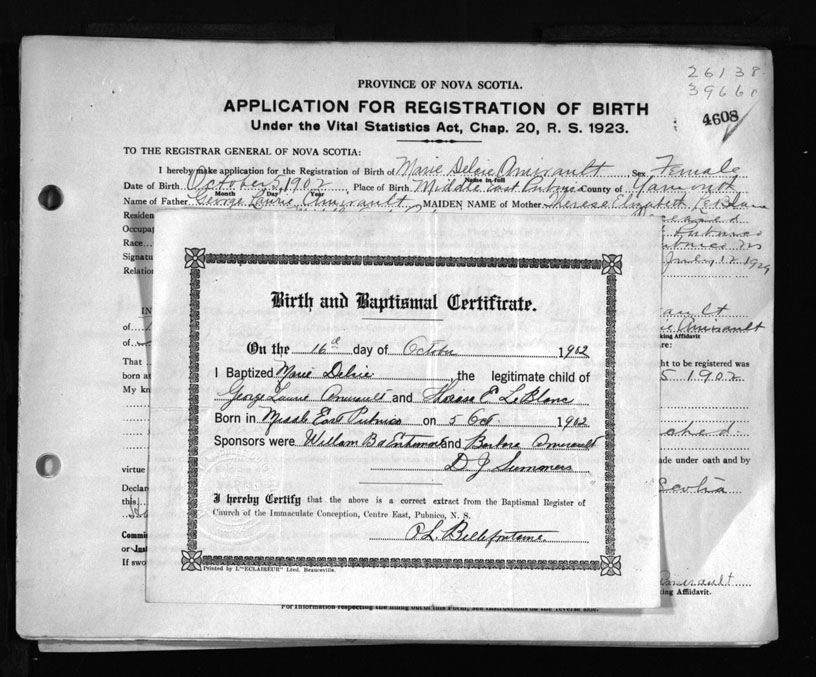 26138
3966
4608
PROVINCE OF NOVA SCOTIA.
APPLICATION FOR REGISTRATION OF BIRTH
Under the Vital Statistics Act, Chap. 20, R. S. 1923.
TO THE REGISTRAR GENERAL OF NOVA SCOTIA:
I hereby make application for the Registration of Birth of Marie Delcie Amirault Sex Female
Name in full
Date of Birth October 5, 1902 Place of Birth Middle East Pubnico County of Yarmouth
Month Day Year
Name of Father George Laurie Amirault MAIDEN NAME of Mother Therese Elizabeth LeBlanc
Residen
Occupa
Race
Pubnico
Signatu
Pubnico NS
Relation
July 12 1929
IN
ault
of
Amirault
king Affidavit
of
re:
That
ht to be registered was
born at
5 1902
My kn
ched
ade under oath and by
virtue
Declar
Scotia
this
Commis
or Just
If swo
Amirault
king Affidavit.
Birth and Baptismal Certificate.
On the 16th day of October 1902
I Baptized Marie Delcie the legitimate child of
George Laurie Amirault and E. LeBlanc
Born in Middle East Pubnico on 5 Oct. 1902
Sponsors were William D'Entremont and Barbara Amirault
D. J. Summers
I hereby Certify that the above is a correct extract from the Baptismal Register of
Church of the Immaculate Conception, Centre East, Pubnico, N. S.
O L. Bellefontaine.
Printed by L'"ECLAIREUR" Limd, Beauceville.
For information respecting the filling out of this Form, see instructions on the reverse side.